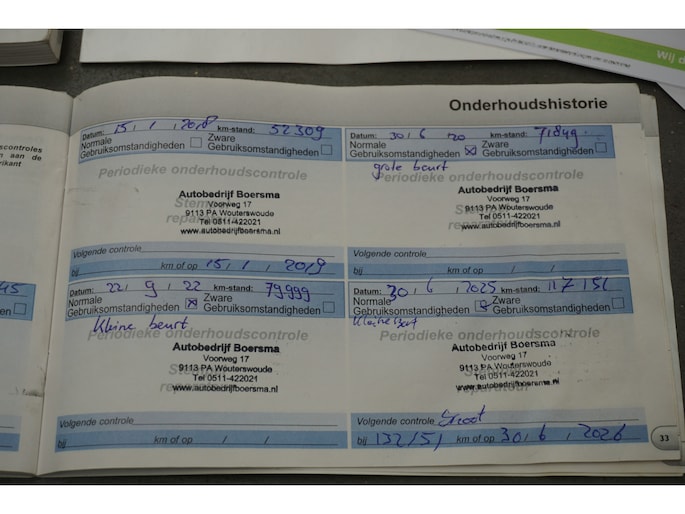 Wij d
Onderhoudshistorie
scontroles
n aan de
rikant
45
en
Datum: 15 / 1 / 2018 km-stand: 52309
Normale Gebruiksomstandigheden
Zware Gebruiksomstandigheden
Periodieke onderhoudscontrole
Autobedrijf Boersma
Voorweg 17
9113 PA Wouterswoude
Tel 0511-422021
www.autobedrijfboersma.nl
Volgende controle
bij km of op 15 / 1 / 2019
Datum: 30 / 6 / 20 km-stand: 71849
Normale Gebruiksomstandigheden
Zware Gebruiksomstandigheden
grote beurt
Periodieke onderhoudscontrole
Autobedrijf Boersma
Voorweg 17
9113 PA Wouterswoude
Tel 0511-422021
www.autobedrijfboersma.nl
Volgende controle
bij km of op / /
Datum: 22 / 9 / 22 km-stand: 79999
Normale Gebruiksomstandigheden
Zware Gebruiksomstandigheden
Kleine beurt
Periodieke onderhoudscontrole
Autobedrijf Boersma
Voorweg 17
9113 PA Wouterswoude
Tel 0511-422021
www.autobedrijfboersma.nl
Volgende controle
bij km of op / /
Datum: 30 / 6 / 2025 km-stand: 117151
Normale Gebruiksomstandigheden
Zware Gebruiksomstandigheden
Periodieke onderhoudscontrole
Autobedrijf Boersma
Voorweg 17
9113 PA Wouterswoude
Tel 0511-422021
www.autobedrijfboersma.nl
reparateur
Volgende controle
bij 132151 km of op 30 / 6 / 2026
33